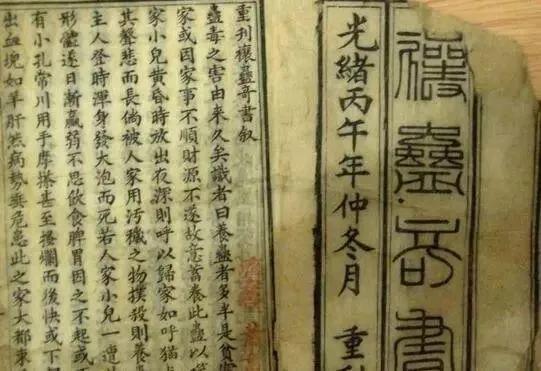 禳蠱奇書
光緒丙午年仲冬月 重
重刊禳蠱奇書叙
蠱毒之害由來久矣識者曰養蠱者多半是貧
家或因家事不順財源不遂故意蓄養此蠱以
家小兒黃昏時放出夜深則呼以歸家如呼猫
其聲悲而長倘被人家用汚穢之物撲殺則養
主人登時渾身發大泡而死若人家小兒一遭
形體逐日漸羸弱不思飲食脾胃因之不起或
有小孔常川用手摩擦甚至搔爛而後快或下
出血塊如羊肝然病勢危急此之家大都束